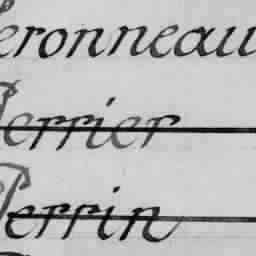 Peronneau
Perrier
Perrin